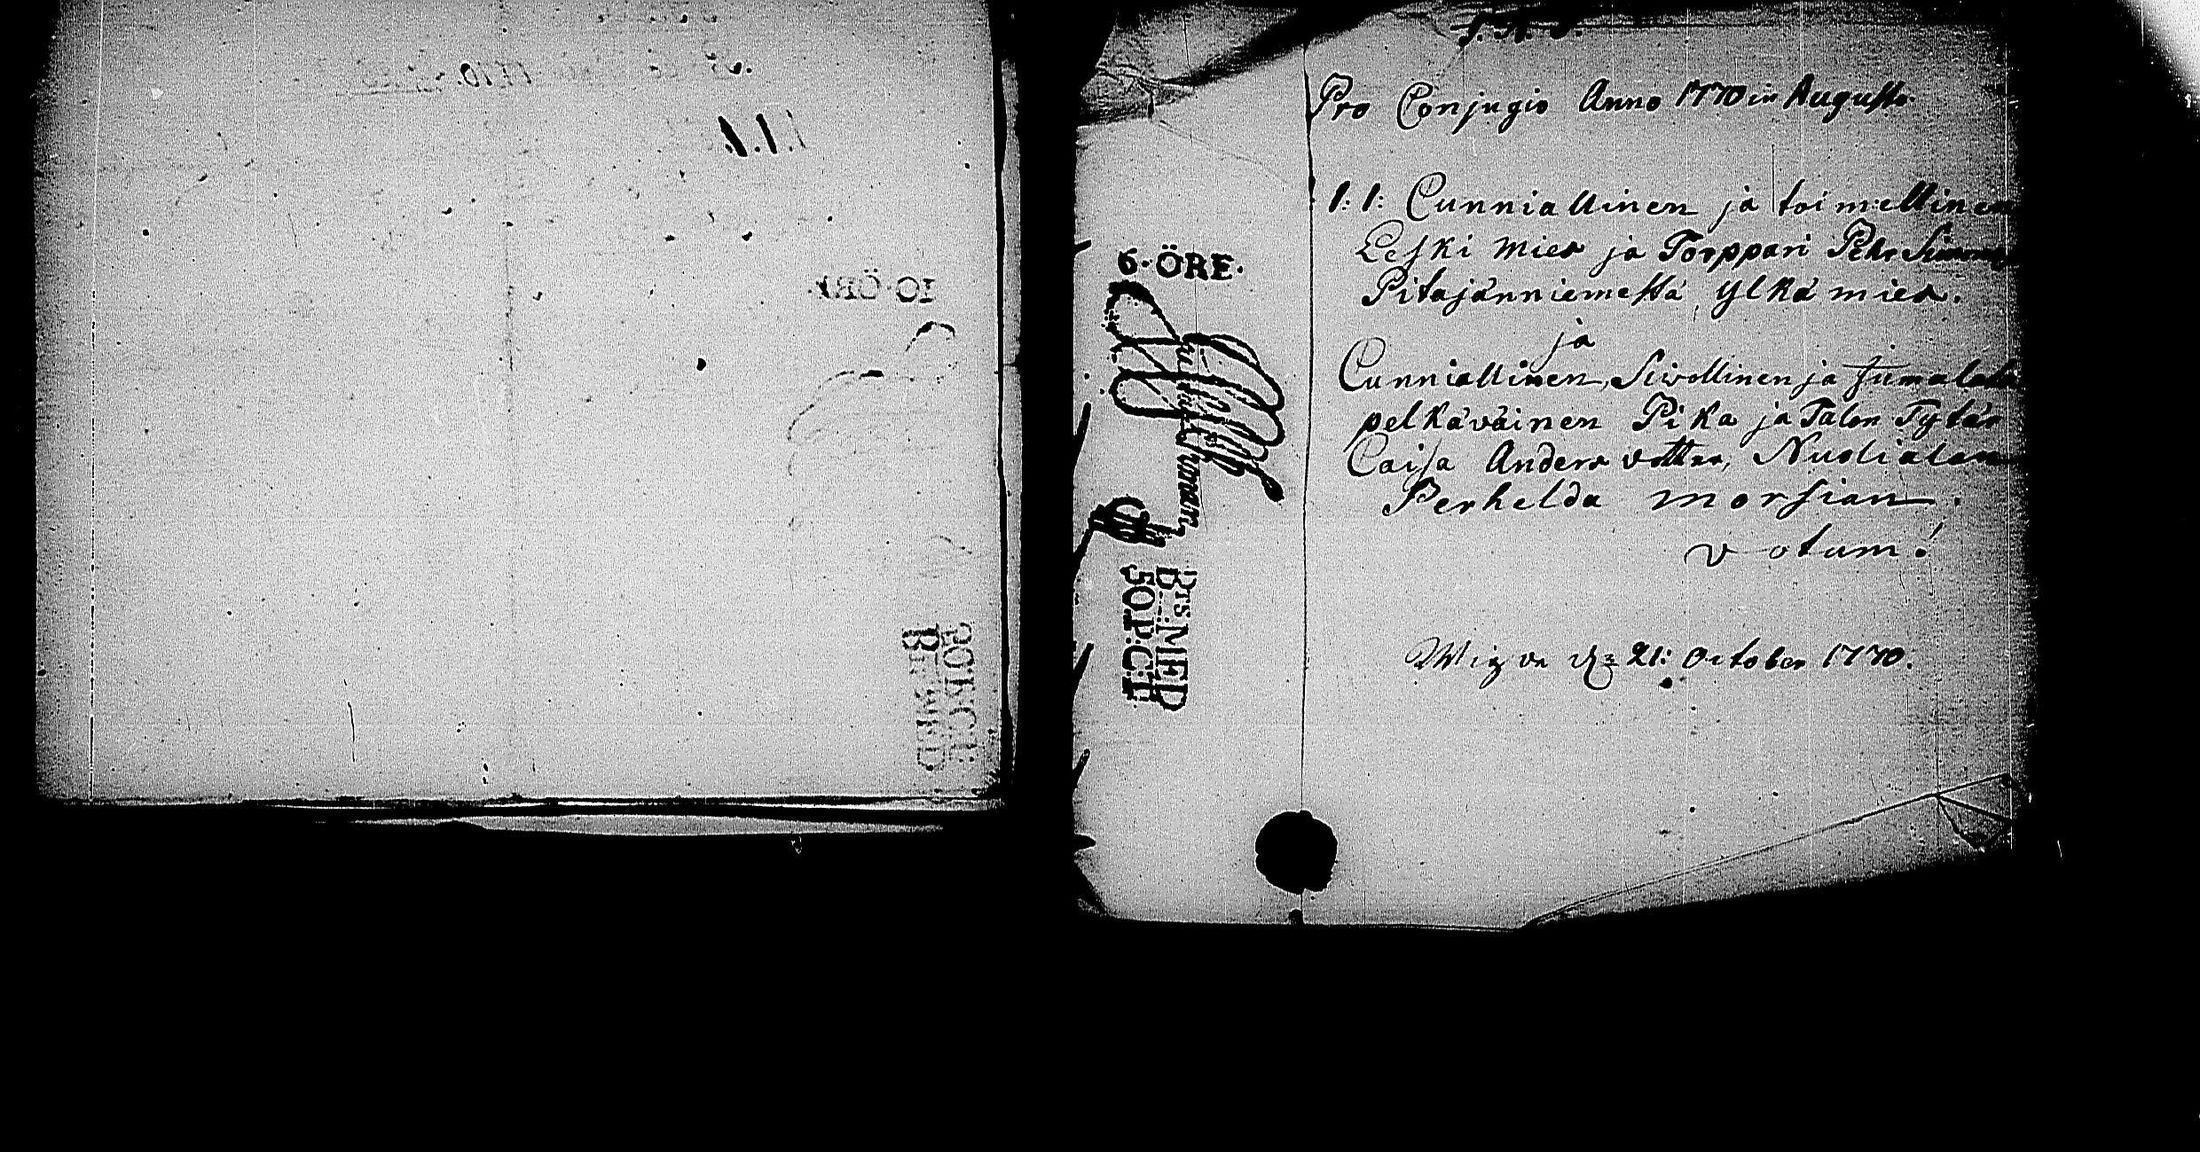 1.1.
10·ÖRE
J. N. J.
Pro Conjugio Anno 1770 in Augusto.
1:1: Cunniallinen ja toimellinen
Leski mies ja Torppari Pehr
Pitajänniemestä, ylkä mies.
ja
Cunniallinen, Siwollinen ja Jumalata
pelkäväinen Pika ja Talon Tytär
Caisa Anders dotter, Nuolialan
Perheldä morsian.
votum!
6·ÖRE·
BTS. MED
50.P.CT
d. 21: October 1770.